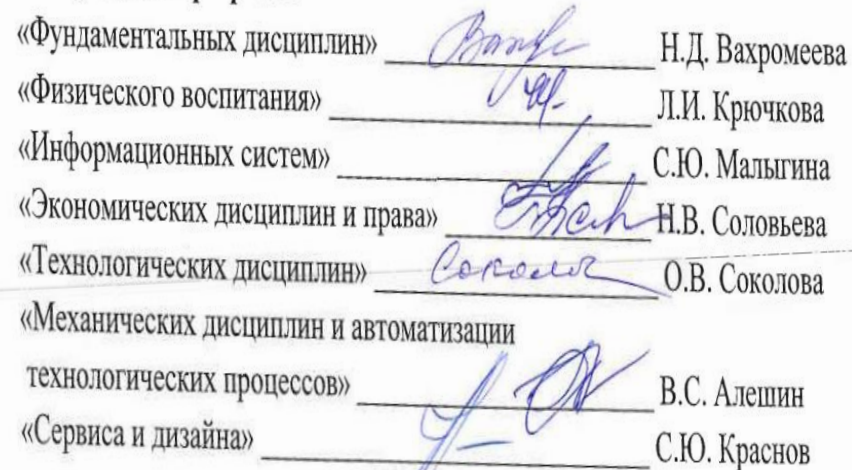 «Фундаментальных дисциплин» Н.Д. Вахромеева
«Физического воспитания» Л.И. Крючкова
«Информационных систем» С.Ю. Малыгина
«Экономических дисциплин и права» Н.В. Соловьева
«Технологических дисциплин» О.В. Соколова
«Механических дисциплин и автоматизации
технологических процессов» В.С. Алешин
«Сервиса и дизайна» С.Ю. Краснов